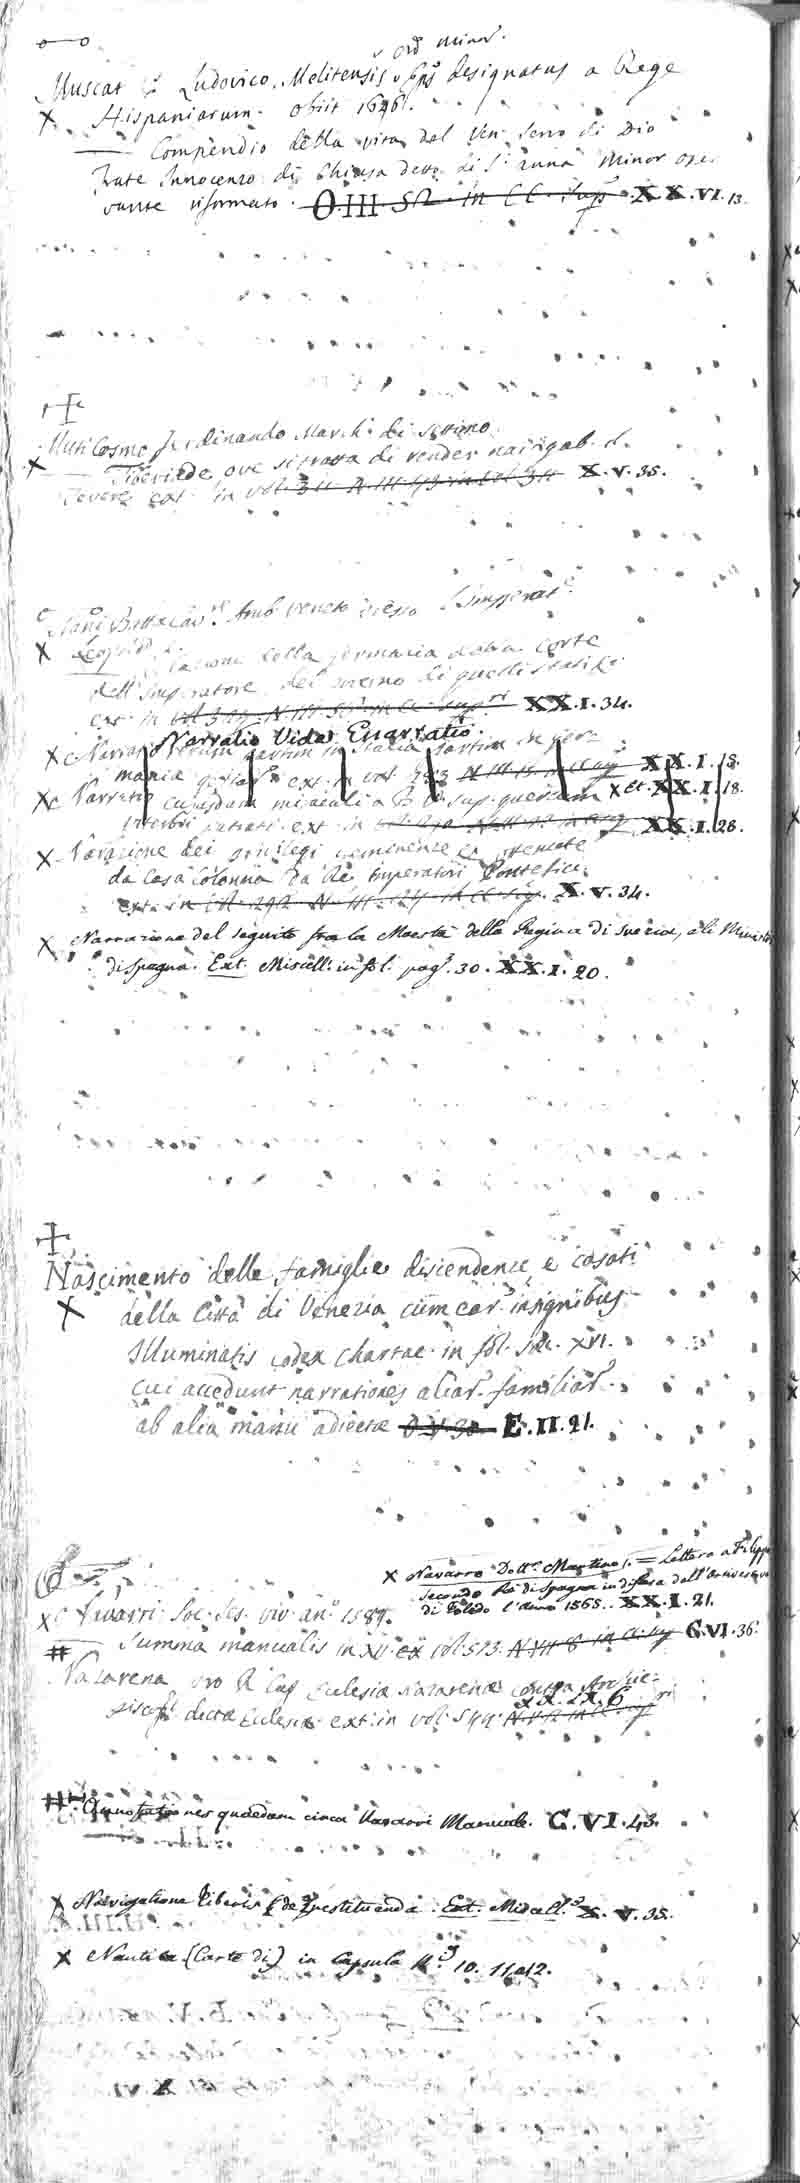 ord minor.
Muscat Ludovico. Melitensis designatus a Rege
X Hispaniarum. obiit 1696.
Compendio della vita del Ven. Servo di Dio
Frate Innocenzo di Chiusa detto di S. Anna Minor osser
vante riformato. O.III.52. in CC. sup. XX.VI.13.
Muti Cosmo Ferdinando March. di Settimo
X Tiberiade, ove si tratta di render navigab. il
Tevere ext. in vol. X.V.35.
Nani Amb. veneto presso l'Imperat.
X Leopoldo
Relazione della Germania della corte
dell'Imperatore, del governo di quelli stati
ext. in XX.I.34.
Narratio Vide Enarratio.
X Narratio rerum partim in Italia partim in Ger-
mania ext. in vol. XX.I.18.
X Narratio cujusdam miraculi a B. V. sup. quercum X et. XX.I.18.
ext. in XX.I.28.
X Narazione dei privilegi eminenze
da Casa Colonna da Re Imperatori Pontefici
ext. in X.V.34.
X Narrazione del seguito fra la Maestà della Regina di Svezia, e li Ministri
di Spagna. Ext. Miscell. in fol. pag. 30. XX.I.20.
Nascimento delle famiglie discendenze e casati
X della Città di Venezia cum ear. insignibus
Illuminatis codex chartac. in fol. sec. XVI.
cui accedunt narrationes aliar. familiar.
ab alia manu adiectæ O.V.30. E.II.21.
X Navarro Dott. Martino. = Lettera a Filippo
Secondo Rè di Spagna in difesa dell'Arcivescovo
di Toledo l'anno 1565. XX.I.21.
X Navarri Soc. Jes. viv. an. 1587.
# Summa manualis in XII. ex vol. 513. C.VI.36.
Nazarena pro R. Cap. Ecclesiæ Nazarenæ contra Archie-
XX.IX.6
piscop. dictæ Ecclesiæ ext. in vol. 544.
# Annotationes quaedam circa Navarri Manuale. C.VI.43.
X Navigatione Tiberis (de) restituenda. Ext. Miscell. X.V.35.
X Nautica (Carte di) in Capsula N. 10. 11 e 12.